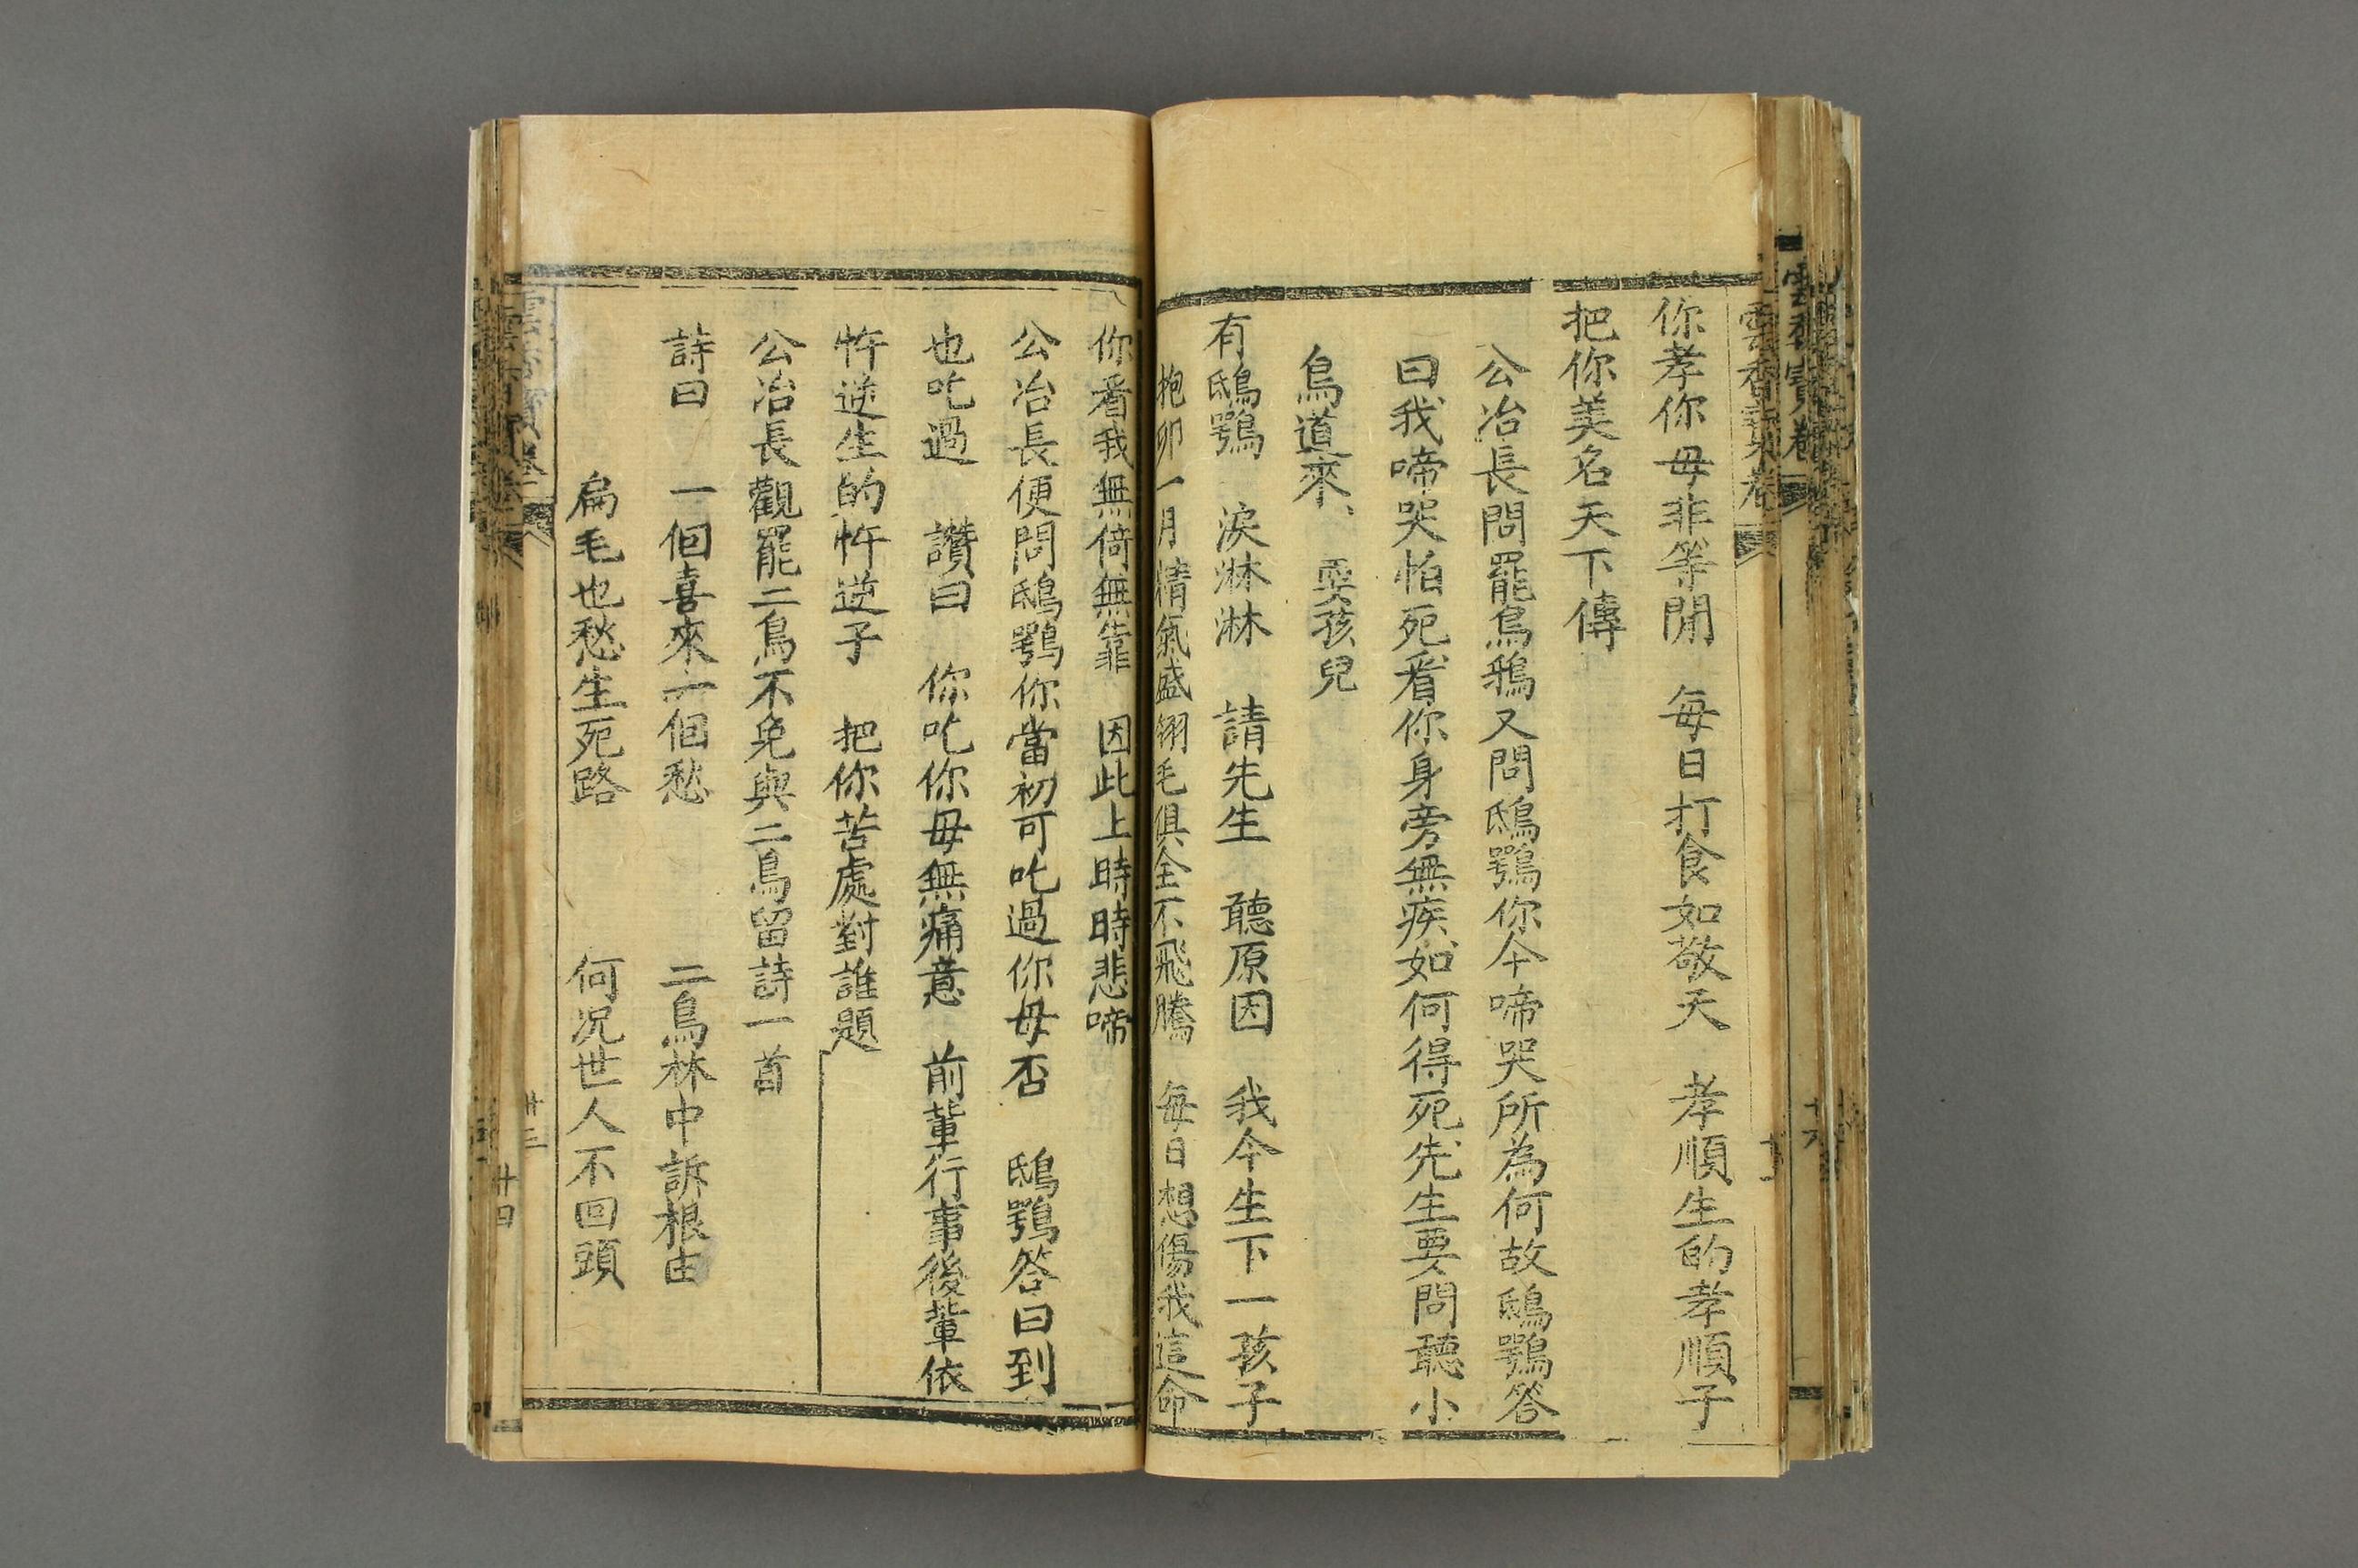 雲香寶卷
你孝你母非等閒　每日打食如敬天　孝順生的孝順子
把你美名天下傳
公冶長問罷烏鴉又問鴟鶚你今啼哭所為何故鴟鶚答
曰我啼哭怕死看你身旁無疾如何得死先生要問聽小
鳥道來、　耍孩兒
有鴟鶚　淚淋淋　請先生　聽原因　我今生下一孩子
抱卵一月精氣盛翎毛俱全不飛騰　每日想傷我這命
你看我無倚無靠　因此上時時悲啼
公冶長便問鴟鶚你當初可吃過你母否　鴟鶚答曰到
也吃過　讚曰　你吃你母無痛意　前輩行事後輩依
忤逆生的忤逆子　把你苦處對誰題
公冶長觀罷二鳥不免與二鳥留詩一首
詩曰　一個喜來一個愁　二鳥林中訴根由
扁毛也愁生死路　何况世人不回頭
廿三
廿四